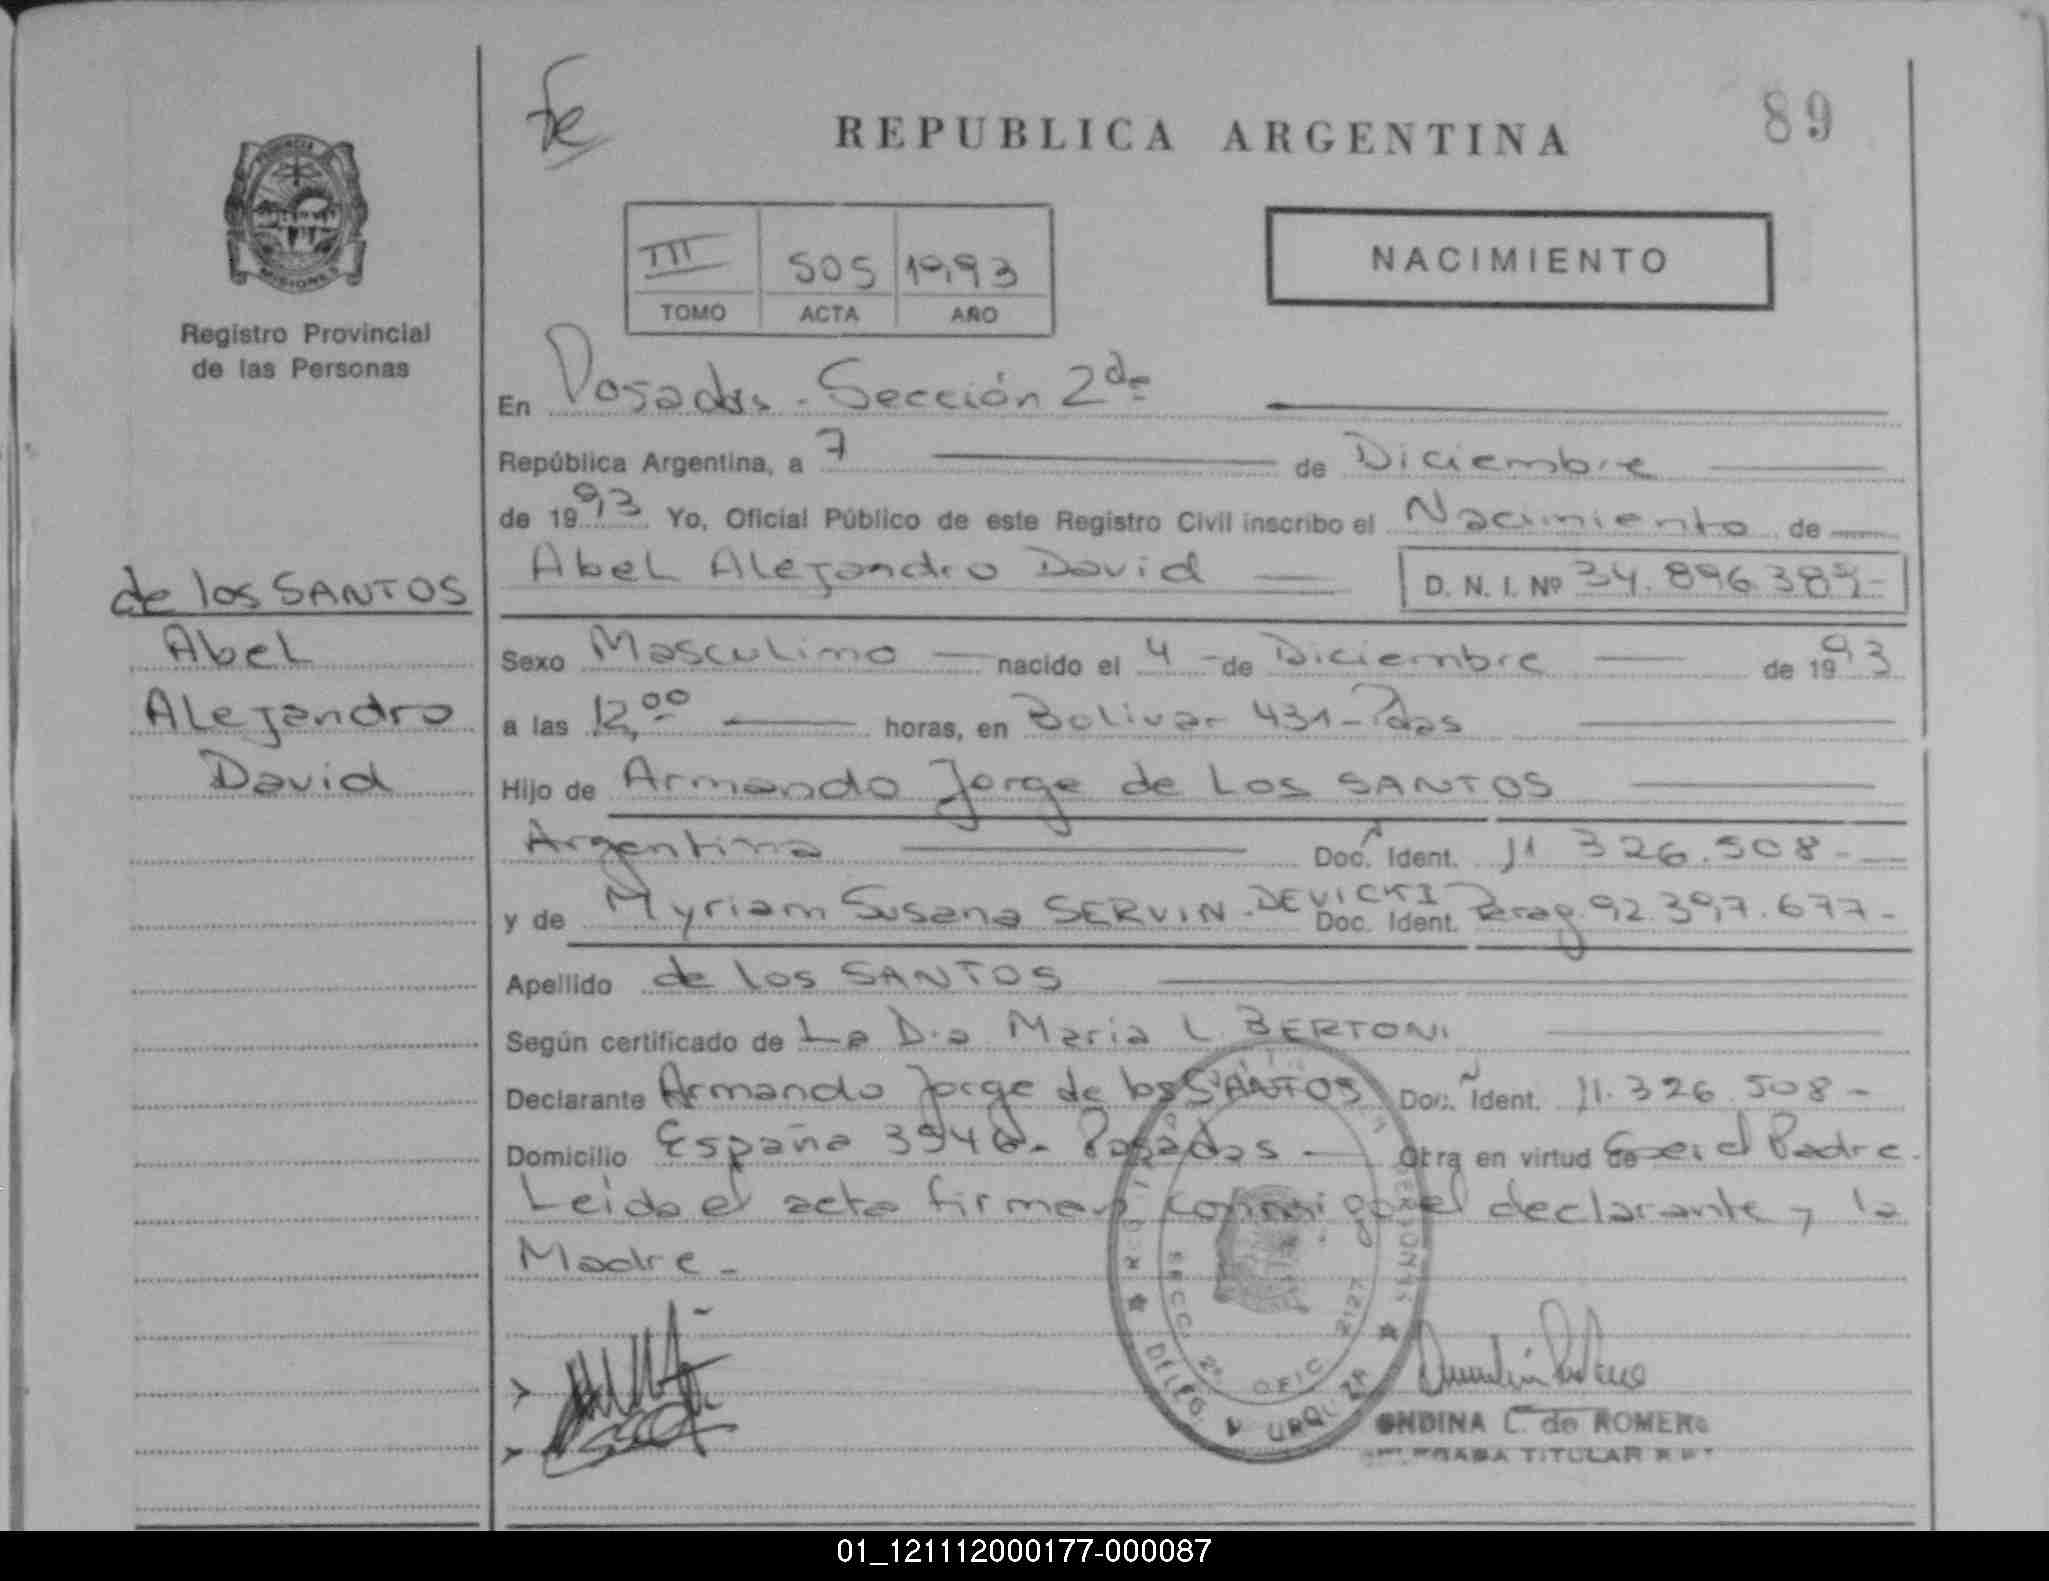 Fe
REPUBLICA ARGENTINA
89
PROVINCIA
MISIONES
Registro Provincial
de las Personas
III 505 19,93
TOMO ACTA AÑO
NACIMIENTO
En Posadas - Sección 2da
República Argentina, a 7 de Diciembre
de 1993 Yo, Oficial Público de este Registro Civil inscribo el Nacimiento de
Abel Alejandro David D. N. I. Nº 34.896.389-
de los SANTOS
Abel
Alejandro
David
Sexo Masculino nacido el 4 - de Diciembre de 1993
a las 12,00 horas, en Bolivar 431 - Pdas
Hijo de Armando Jorge de Los SANTOS
Argentina Doc. Ident. 11 326.508-
y de Myriam Susana SERVIN - DEVICKI Doc. Ident. Parag. 92.397.677-
Apellido de los SANTOS
Según certificado de La Dra Maria L. BERTONI
Declarante Armando Jorge de los SANTOS Doc. Ident. 11.326.508-
Domicilio España 3946 - Posadas - Obra en virtud de ser el Padre.
Leida el acta firman conmigo el declarante y la
Madre -
SECC. 2º OFIC 2127
DELEG. V URQUIZA
ONDINA C. de ROMERO
DELEGADA TITULAR
01_121112000177-000087